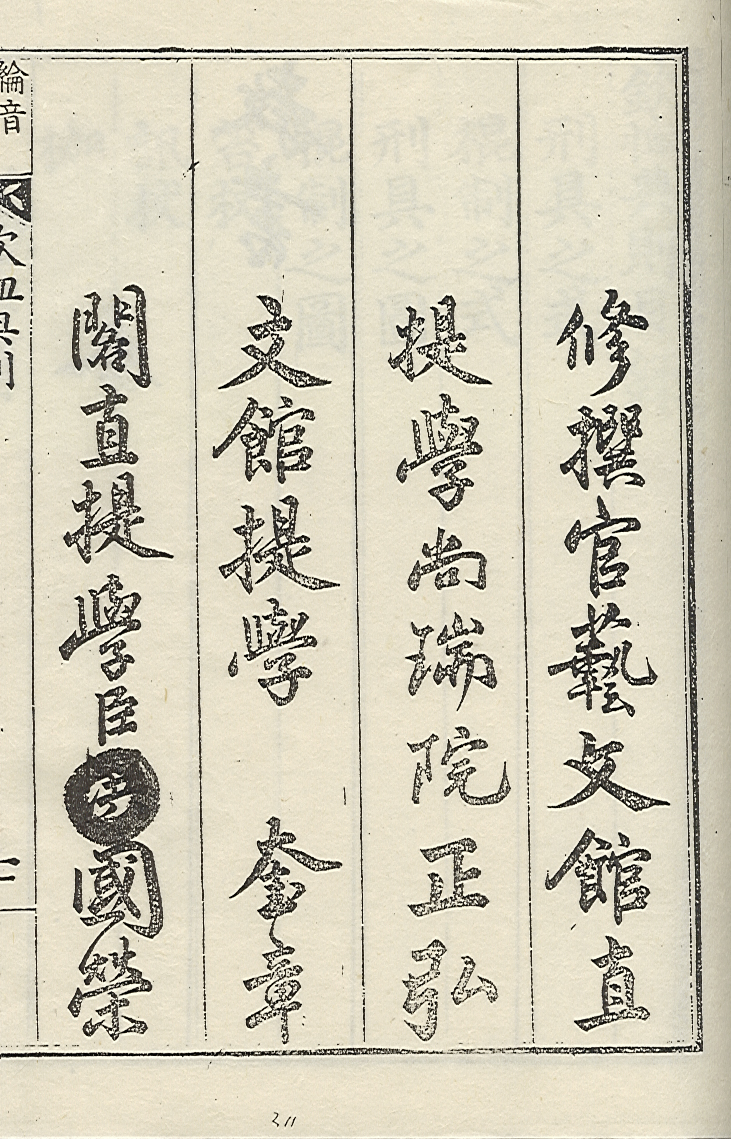 修撰官藝文館直
提學尚瑞院正弘
文館提學 奎章
閣直提學臣 國榮
綸音